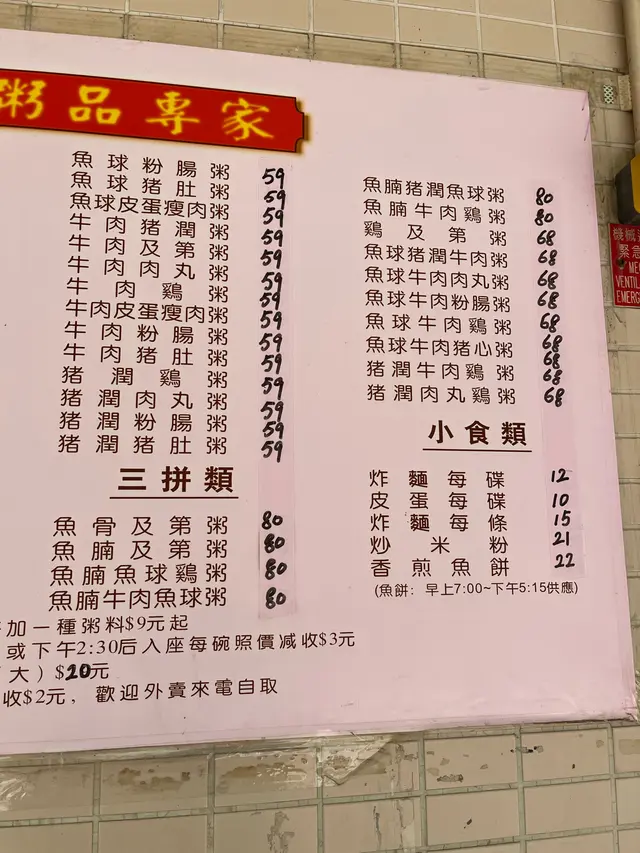 粥品專家
魚球粉腸粥 59
魚球猪肚粥 59
魚球皮蛋瘦肉粥 59
牛肉猪潤粥 59
牛肉及第粥 59
牛肉肉丸粥 59
牛肉鷄粥 59
牛肉皮蛋瘦肉粥 59
牛肉粉腸粥 59
牛肉猪肚粥 59
猪潤鷄粥 59
猪潤肉丸粥 59
猪潤粉腸粥 59
猪潤猪肚粥 59
三拼類
魚骨及第粥 80
魚腩及第粥 80
魚腩魚球鷄粥 80
魚腩牛肉魚球粥 80
加一種粥料$9元起
或下午2:30后入座每碗照價减收$3元
大）$20元
收$2元，歡迎外賣來電自取
魚腩猪潤魚球粥 80
魚腩牛肉鷄粥 80
鷄及第粥 68
魚球猪潤牛肉粥 68
魚球牛肉肉丸粥 68
魚球牛肉粉腸粥 68
魚球牛肉鷄粥 68
魚球牛肉猪心粥 68
猪潤牛肉鷄粥 68
猪潤肉丸鷄粥 68
小食類
炸麵每碟 12
皮蛋每碟 10
炸麵每條 15
炒米粉 21
香煎魚餅 22
(魚餅：早上7:00~下午5:15供應)
機械
緊急
ME
VENTIL
EMERG